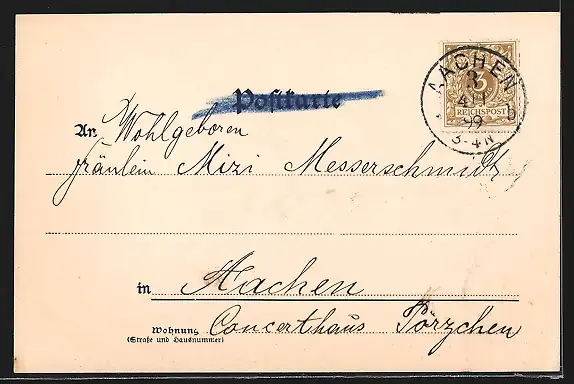 Postkarte
AACHEN
3
4 11
99
3-4N
b
3
REICHSPOST
An Wohlgeboren
Fräulein Mizi Messerschmidt
in Aachen
Wohnung Concerthaus Pörzchen
(Straße und Hausnummer)